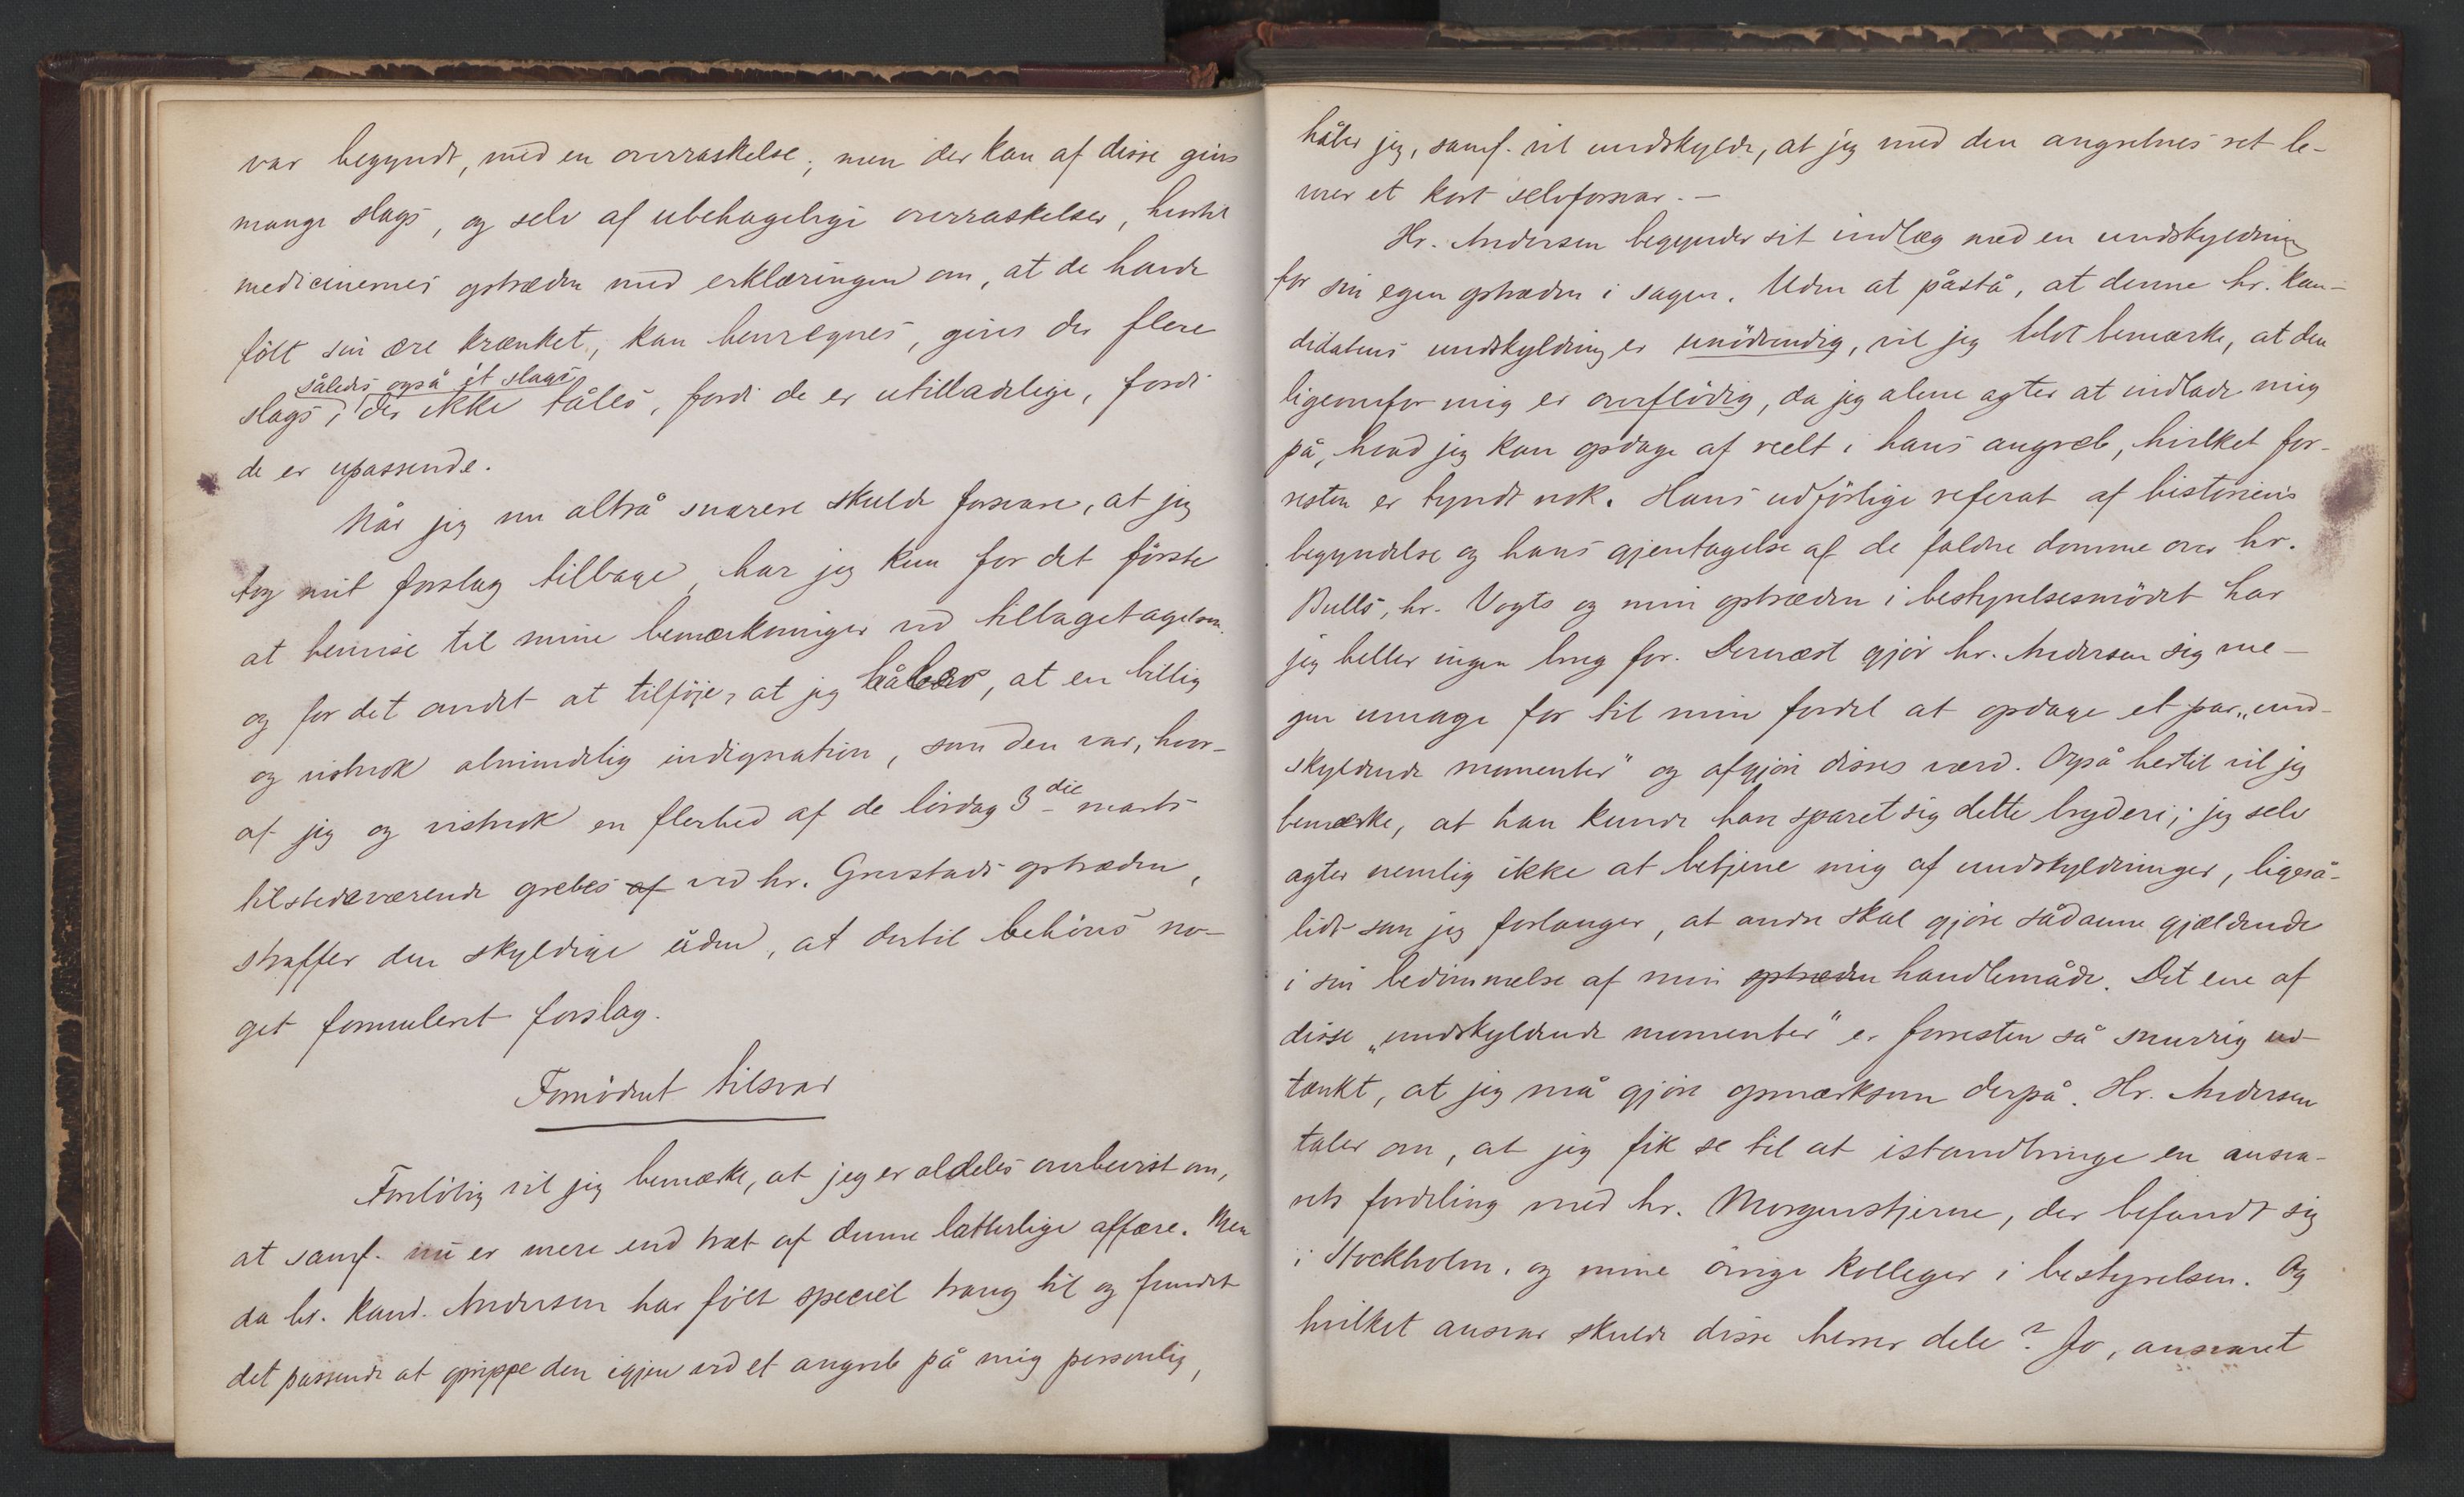 var begyndt, med en overraskelse; men der kan af disse gives
mange slags, og selv af ubehagelige overraskelser, hvortil
medicinernes optræden med erklæringen om, at de havde
følt sin ære krænket, kan henregnes, gives der flere
således også ét slags
slags, der ikke tåles, fordi de er utilladelige, fordi
de er upassende.
Når jeg nu altså snarere skulde forsvare, at jeg
tog mit forslag tilbage, har jeg kun for det første
at henvise til mine bemærkninger ved tilbagetagelsen
og for det andet at tilføje, at jeg håber, at en billig
og vistnok almindelig indignation, som den var, hvor-
af jeg og vistnok en flerhed af de lördag 3die marts
tilstedeværende grebes af ved hr. Grustads optræden,
straffer den skyldige uden, at dertil behöves no-
get formuleret forslag.
Fornödent tilsvar
Forelöbig vil jeg bemærke, at jeg er aldeles overbevist om,
at samf. nu er mere end træt af denne latterlige affære. Men
da hr. kand. Andersen har fölt speciel trang til og fundet
det passende at oprippe den igjen ved et angreb på mig personlig,
håber jeg, samf. vil undskylde, at jeg med den angrebnes ret le-
verer et kort selvforsvar. –
Hr. Andersen begynder sit indlæg med en undskyldning
for sin egen optræden i sagen. Uden at påstå, at denne hr. kan-
didatens undskyldning er unödvendig, vil jeg blot bemærke, at den
ligeoverfor mig er overflödig, da jeg alene agter at indlade mig
på, hvad jeg kan opdage af reelt i hans angreb, hvilket for-
resten er tyndt nok. Hans udförlige referat af historiens
begyndelse og hans gjentagelse af de faldne domme over hr.
Bulls, hr. Vogts og min optræden i bestyrelsesmödet har
jeg heller ingen brug for. Dernæst gjör hr. Andersen sig me-
gen umage for til min fordel at opdage et par „und-
skyldende momenter" og afgjöre disses værd. Også hertil vil jeg
bemærke, at han kunde have sparet sig dette bryderi; jeg selv
agter nemlig ikke at betjene mig af undskyldninger, ligeså-
lidt som jeg forlanger, at andre skal gjöre sådanne gjældende
i sin bedömmelse af min optræden handlemåde. Det ene af
disse „undskyldende momenter" er forresten så snurrig ud-
tænkt, at jeg må gjöre opmærksom derpå. Hr. Andersen
taler om, at jeg fik se til at istandbringe en ansva-
rets fordeling med hr. Morgenstjerne, der befandt sig
i Stockholm, og mine övrige kolleger i bestyrelsen. Og
hvilket ansvar skulde disse herrer dele? Jo, ansvaret